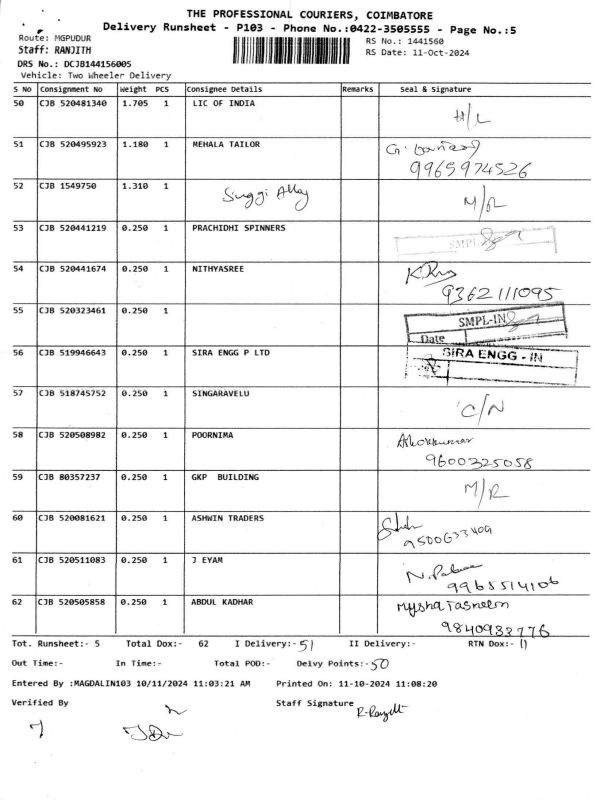 THE PROFESSIONAL COURIERS, COIMBATORE
Delivery Runsheet - P103 - Phone No.:0422-3505555 - Page No.:5
Route: MGPUDUR RS No.: 1441560
Staff: RANJITH RS Date: 11-Oct-2024
DRS No.: DCJB144156005
Vehicle: Two Wheeler Delivery
S No Consignment No Weight PCS Consignee Details Remarks Seal & Signature
50 CJB 520481340 1.705 1 LIC OF INDIA H/L
51 CJB 520495923 1.180 1 MEHALA TAILOR G.
9965974526
52 CJB 1549750 1.310 1 M/R
53 CJB 520441219 0.250 1 PRACHIDHI SPINNERS SMPL
54 CJB 520441674 0.250 1 NITHYASREE
9362111095
55 CJB 520323461 0.250 1 SMPL-IN
Date
56 CJB 519946643 0.250 1 SIRA ENGG P LTD SIRA ENGG - IN
57 CJB 518745752 0.250 1 SINGARAVELU C/N
58 CJB 520508982 0.250 1 POORNIMA Ashokkumar
9600325058
59 CJB 80357237 0.250 1 GKP BUILDING M/R
60 CJB 520081621 0.250 1 ASHWIN TRADERS
9500633409
61 CJB 520511083 0.250 1 J EYAM
9965514106
62 CJB 520505858 0.250 1 ABDUL KADHAR Mysha Tasneem
9840933776
Tot. Runsheet:- 5 Total Dox:- 62 I Delivery:- 51 II Delivery:- RTN Dox:- 11
Out Time:- In Time:- Total POD:- Delvy Points:- 50
Entered By :MAGDALIN103 10/11/2024 11:03:21 AM Printed On: 11-10-2024 11:08:20
Verified By Staff Signature